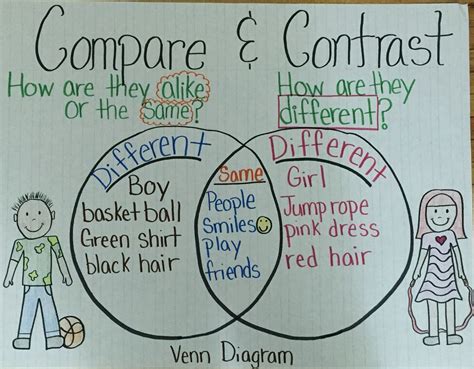 Compare & Contrast
How are they alike
or the same?
How are they
different?
Different
Boy
basketball
Green shirt
black hair
Same
People
Smiles
play
friends
Different
Girl
Jump rope
pink dress
red hair
Venn Diagram